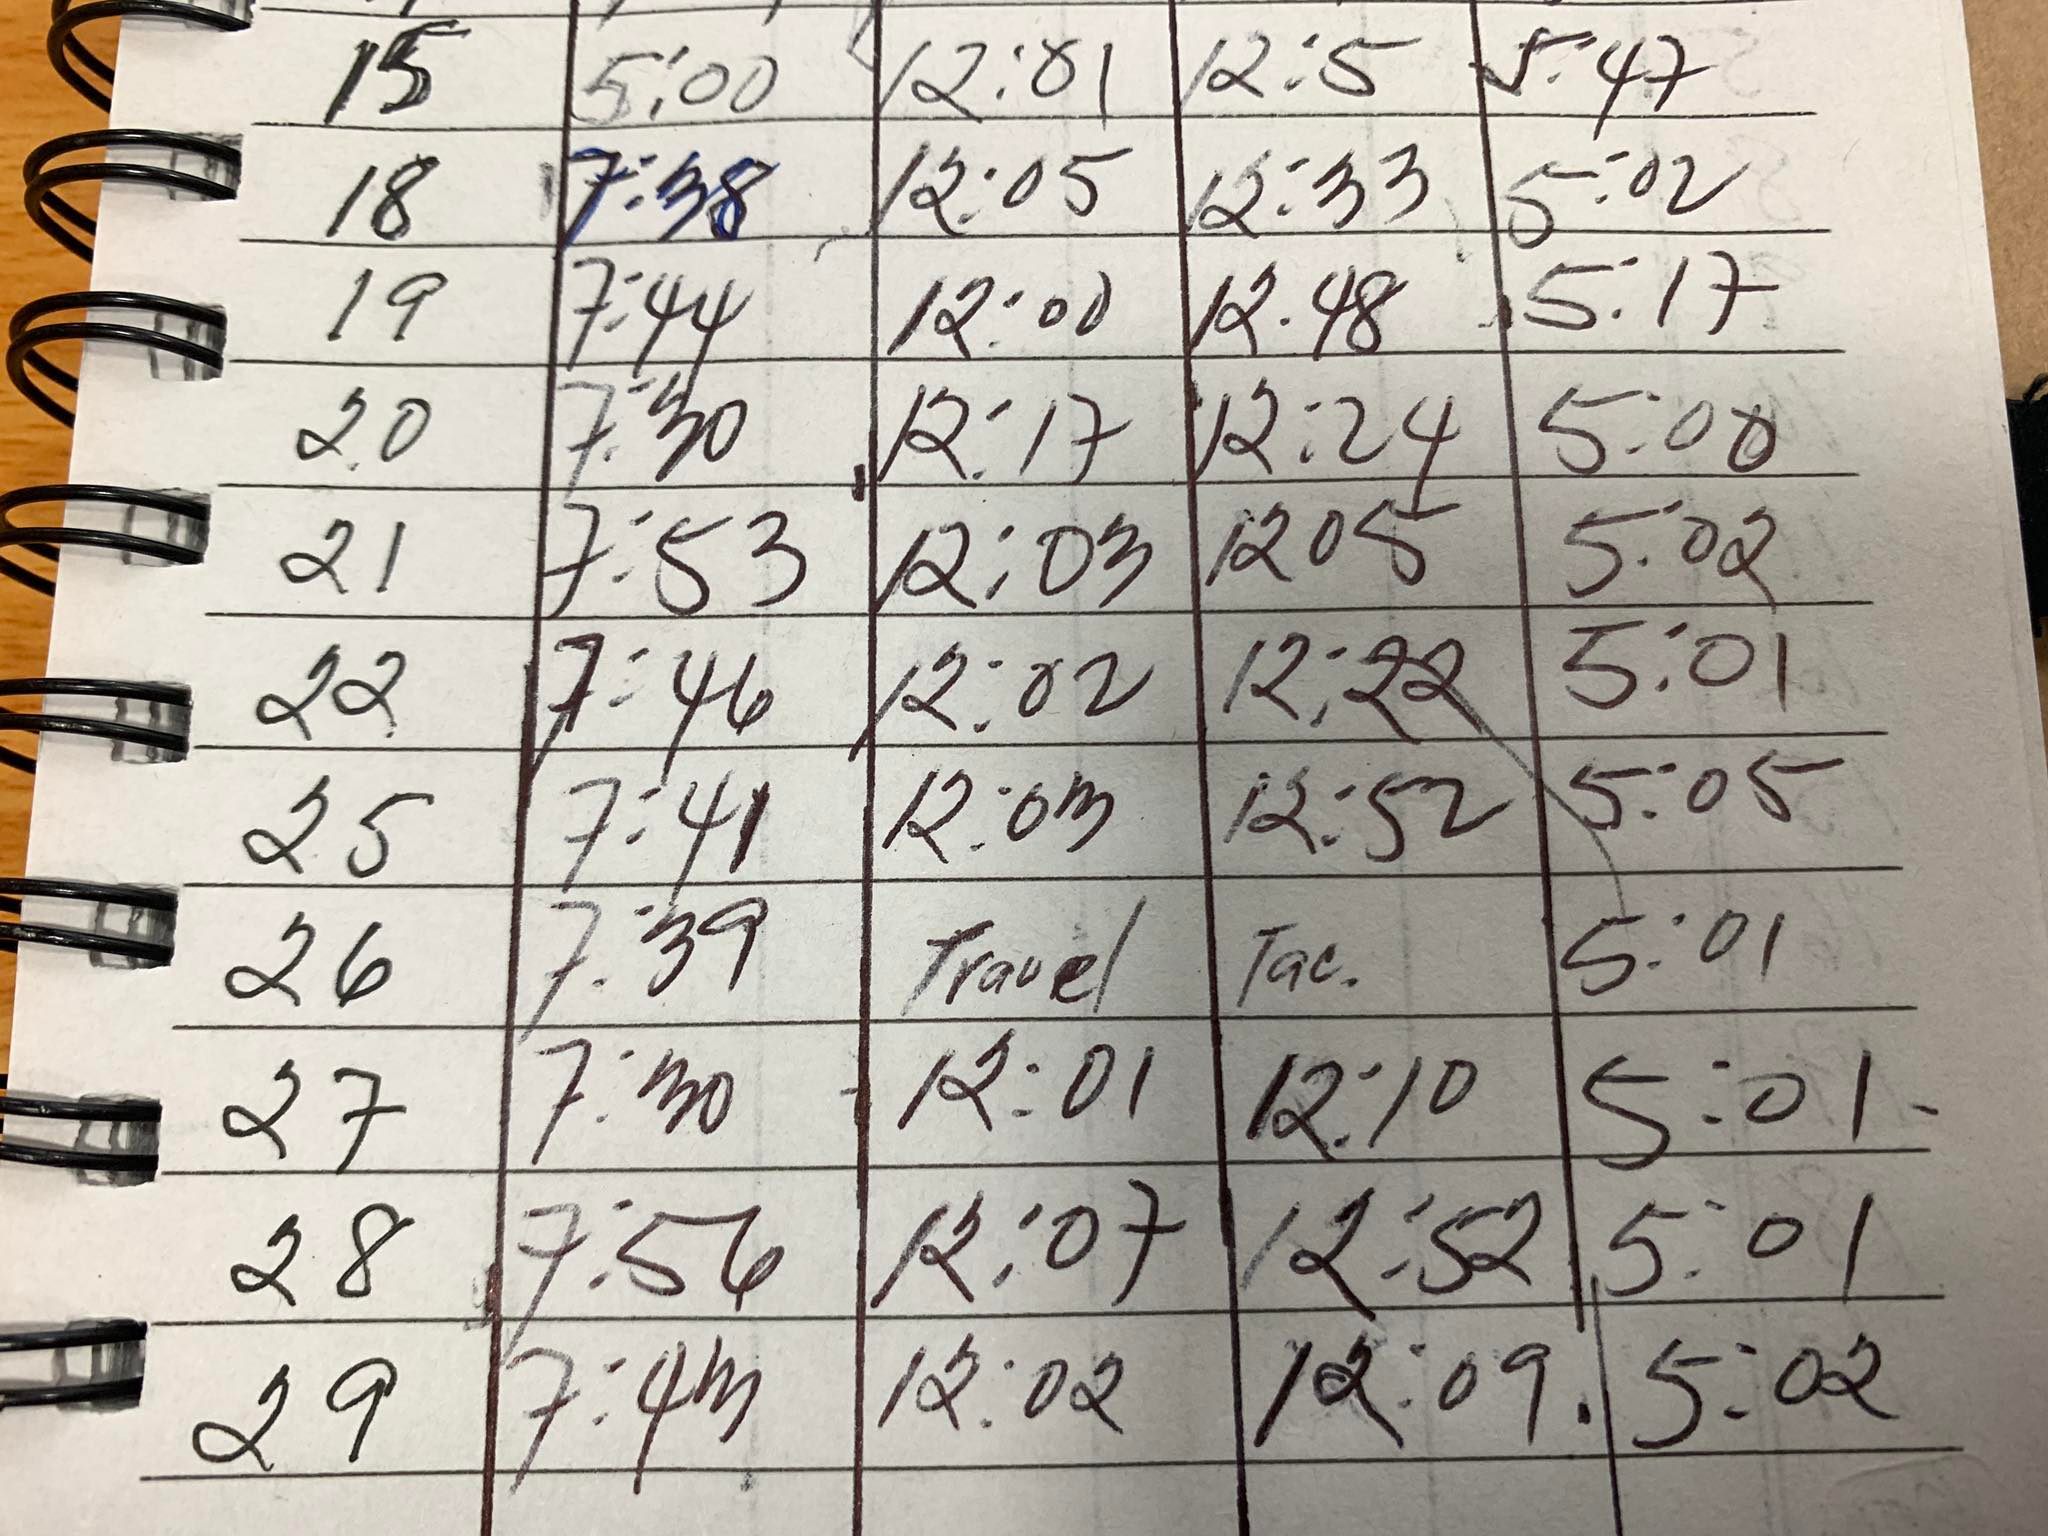 15 5:00 12:01 12:5 5:47
18 7:38 12:05 12:33 5:02
19 7:44 12:00 12.48 5:17
20 7:30 12:17 12:24 5:00
21 7:53 12:03 1205 5:02
22 7:46 12:02 12:22 5:01
25 7:41 12:03 12:52 5:05
26 7:39 Travel Tac. 5:01
27 7:30 12:01 12:10 5:01
28 7:56 12:07 12:52 5:01
29 7:43 12:02 12:09. 5:02